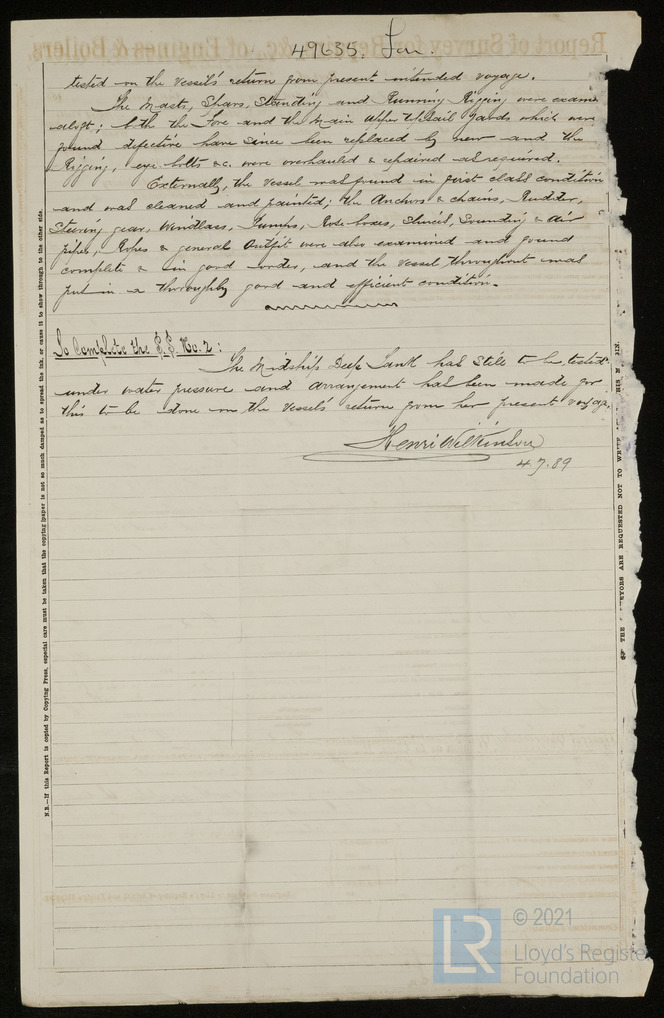 49635. Lon.
tested on the vessel's return from present intended voyage.
The Masts, Spars, Standing and Running Rigging were exam
aloft; both the Fore and the Main Upper Topsail Yards which were
found defective have since been replaced by new and the
Rigging, eye bolts &c. were overhauled & repaired as required.
Externally, the vessel was found in first class condition
and was cleaned and painted; the Anchors & chains, Rudder,
Steering gear, Windlass, Pumps, Rose boxes, Sluices, Sounding & Air
pipes, Ropes & general Outfit were also examined and found
complete & in good order, and the vessel throughout was
put in a thoroughly good and efficient condition.
To Complete the S.S. No. 2:
The Midship Deep Tank has still to be tested
under water pressure and arrangement has been made for
this to be done on the vessel's return from her present voyage.
Henri Wilkinson
4.7.89
N.B.—If this Report is copied by Copying Press, especial care must be taken that the copying paper is not so much damped as to spread the ink, or cause it to show through to the other side.
THE SURVEYORS ARE REQUESTED NOT TO WRITE
© 2021
Lloyd's Register
Foundation
LR